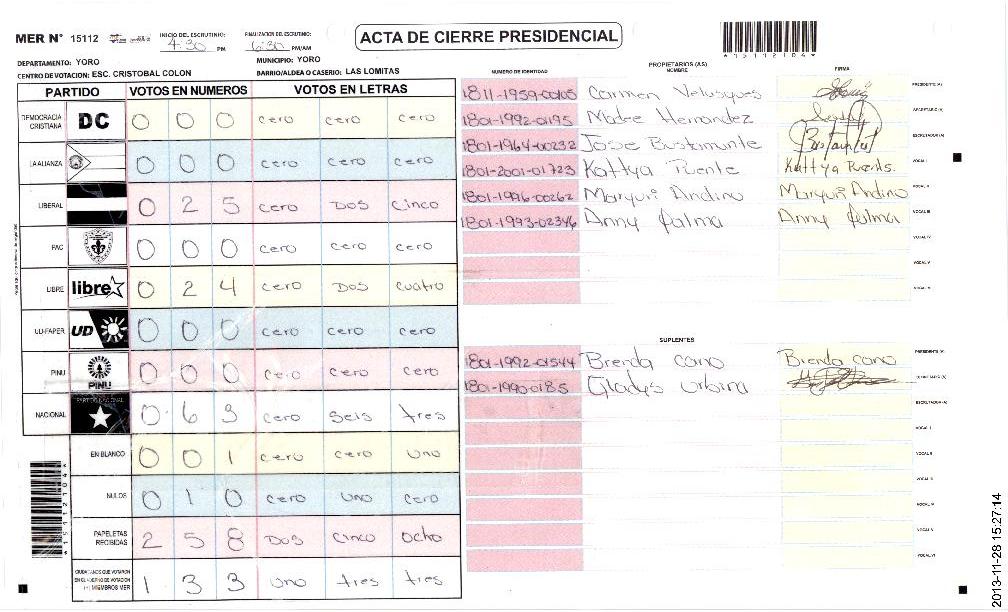 MER N° 15112 INICIO DEL ESCRUTINIO: 4:30 PM FINALIZACION DEL ESCRUTINIO: 6:30 PM/AM
ACTA DE CIERRE PRESIDENCIAL
*15112104*
DEPARTAMENTO: YORO MUNICIPIO: YORO
CENTRO DE VOTACION: ESC. CRISTOBAL COLON BARRIO/ALDEA O CASERIO: LAS LOMITAS
PARTIDO VOTOS EN NUMEROS VOTOS EN LETRAS
DEMOCRACIA CRISTIANA DC 0 0 0 cero cero cero
LA ALIANZA 0 0 0 cero cero cero
LIBERAL 0 2 5 cero Dos cinco
PAC 0 0 0 cero cero cero
LIBRE libre 0 2 4 cero Dos cuatro
UD-FAPER UD 0 0 0 cero cero cero
PINU PINU 0 0 0 cero cero cero
NACIONAL PARTIDO NACIONAL 0 6 3 cero seis tres
EN BLANCO 0 0 1 cero cero uno
NULOS 0 1 0 cero uno cero
PAPELETAS RECIBIDAS 2 5 8 Dos cinco ocho
CIUDADANOS QUE VOTARON EN CUADERNO DE VOTACION (+) MIEMBROS MER 1 3 3 uno tres tres
*15112104*
PROPIETARIOS (AS)
NUMERO DE IDENTIDAD NOMBRE FIRMA
1811-1959-00105 Carmen Velusques PRESIDENTE (A)
1801-1992-0195 Madre Hernandez SECRETARIO (A)
1801-1964-00232 Josse Bustamante Bustamante ESCRUTADOR (A)
1801-2001-01723 Kattya Puente Kattya Puente. VOCAL I
1801-1996-00262 Maryuri Andino Maryuri Andino VOCAL II
1801-1993-02346 Anny Palma Anny Palma VOCAL III
VOCAL IV
VOCAL V
VOCAL VI
SUPLENTES
1801-1992-01544 Brenda cano Brenda cano PRESIDENTE (A)
1801-1990-0185 Gladys Urbina SECRETARIO (A)
ESCRUTADOR (A)
VOCAL I
VOCAL II
VOCAL III
VOCAL IV
VOCAL V
VOCAL VI
2013-11-28 15:27:14